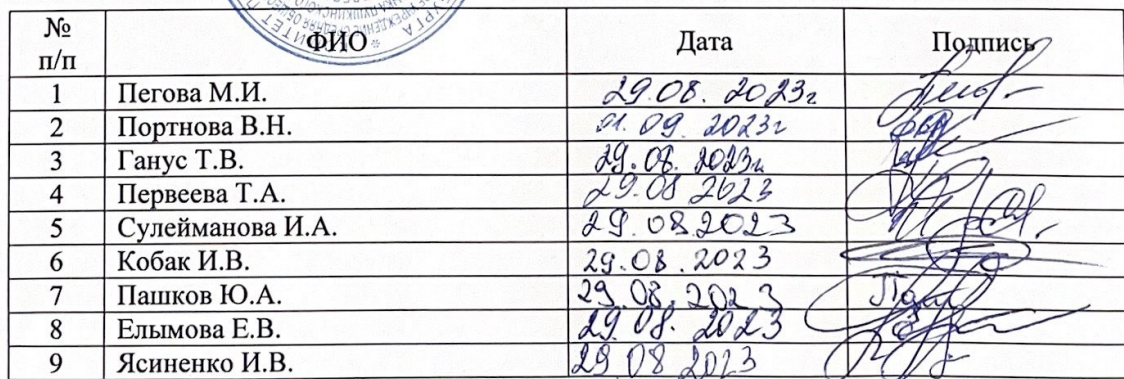 № п/п ФИО Дата Подпись
1 Пегова М.И. 29.08. 2023г
2 Портнова В.Н. 01.09. 2023г
3 Ганус Т.В. 29.08. 2023г
4 Первеева Т.А. 29.08 2023
5 Сулейманова И.А. 29.08.2023
6 Кобак И.В. 29.08.2023
7 Пашков Ю.А. 29.08.2023
8 Елымова Е.В. 29.08. 2023
9 Ясиненко И.В. 29 08 2023